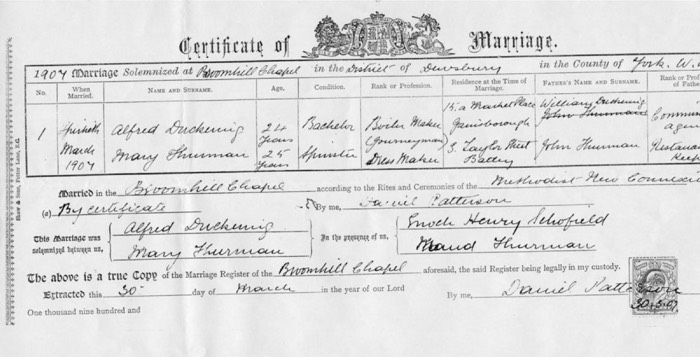 Certificate of Marriage.
1907 Marriage Solemnized at Broomhill Chapel in the District of Dewsbury in the County of York. W.
No. When Married. Name and Surname. Age. Condition. Rank or Profession. Residence at the Time of Marriage. Father's Name and Surname. Rank or Prof of Father
1 March 1907 Alfred Duckering 24 Years Bachelor Boiler Maker (Journeyman) 15, a Market Place Gainsborough William Duckering John Thurman Comm agen
Mary Thurman 25 Years Spinster Dress Maker 3. Taylor Street Batley John Thurman Restaura Keep
Married in the Broomhill Chapel according to the Rites and Ceremonies of the Methodist New Connexi
(a) By certificate By me, Daniel Patterson
This Marriage was solemnized between us, Alfred Duckering Mary Thurman In the presence of us, Enoch Henry Schofield Maud Thurman
The above is a true Copy of the Marriage Register of the Broomhill Chapel aforesaid, the said Register being legally in my custody.
Extracted this 30 day of March in the year of our Lord
One thousand nine hundred and By me, Daniel Patterson
30-3-07
Shaw & Sons, Fetter Lane, E.C.